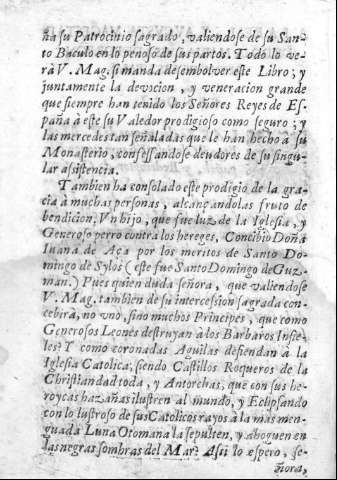 ña su Patrocinio sagrado, valiendose de su San-
to Baculo en lo penoso de sus partos. Todo lo ve-
rà V. Mag. si manda desembolver este Libro; y
juntamente la devocion, y veneracion grande
que siempre han tenido los Señores Reyes de Es-
paña à este su Valedor prodigioso como seguro; y
las mercedes tan señaladas que le han hecho a su
Monasterio, confessandose deudores de su singu-
lar assistencia.
Tambien ha consolado este prodigio de la gra-
cia à muchas personas, alcançandolas fruto de
bendicion. Vn hijo, que fue luz de la Iglesia, y
Generoso perro contra los hereges, Concibiò Doña
Iuana de Aça por los meritos de Santo Do-
mingo de Sylos (este fue Santo Domingo de Guz-
man.) Pues quien duda señora, que valiendose
V. Mag. tambien de su intercession sagrada con-
cebirà, no vno, sino muchos Principes, que como
Generosos Leones destruyan à los Barbaros Infie-
les? Y como coronadas Aguilas defiendan à la
Iglesia Catolica, siendo Castillos Roqueros de la
Christiandad toda, y Antorchas, que con sus he-
roycas hazañas ilustren al mundo, y Eclipsando
con lo lustroso de sus Catolicos rayos à la mas men-
guada Luna Otomana la sepulten, y ahoguen en
las negras sombras del Mar? Assi lo espero, se-
ñora,